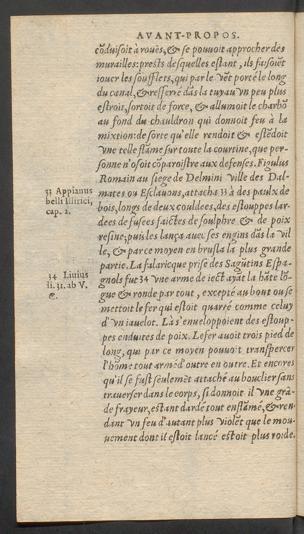 AVANT-PROPOS.
cõduisoit à rouës, & se pouuoit approcher des
murailles: prests desquelles estant, ils faisoiẽt
iouer les soufflets, qui par le vẽt porté le long
du canal, & resserré dãs la tuyau vn peu plus
estroit, sortoit de force, & allumoit le charbõ
au fond du chauldron qui donnoit feu à la
mixtion: de sorte qu'elle rendoit & estẽdoit
vne telle flãme sur toute la courtine, que per-
sonne n'osoit cõparoistre aux defenses. Figulus
Romain au siege de Delmini ville des Dal-
mates ou Esclauons, attacha 33 à des paulx de
bois, longs de deux couldees, des estouppes lar-
dees de fusees faictes de soulphre & de poix
resine; puis les lança auec ses engins dãs la vil
le, & par ce moyen en brusla la plus grande
partie. La falaricque prise des Sagũtins Espa-
gnols fut 34 vne arme de iect ayãt la hãte lõ-
gue & ronde par tout, excepté au bout ou se
mettoit le fer qui estoit quarré comme celuy
d'vn iauelot. Là s'enueloppoient des estoup-
pes enduites de poix. Le fer auoit trois pied de
long, qui par ce moyen pouuoit transpercer
l'hõme tout armé d'outre en outre. Et encores
qu'il se fust seulemẽt attaché au bouclier sans
trauerser dans le corps, si donnoit il vne grã-
de frayeur, estant dardé tout enflãmé, & ren-
dant vn feu d'autant plus violẽt que le mou-
uement dont il estoit lancé estoit plus roide.
33 Appianus
belli Illirici,
cap. 2.
34 Liuius
li. 31. ab V.
&.